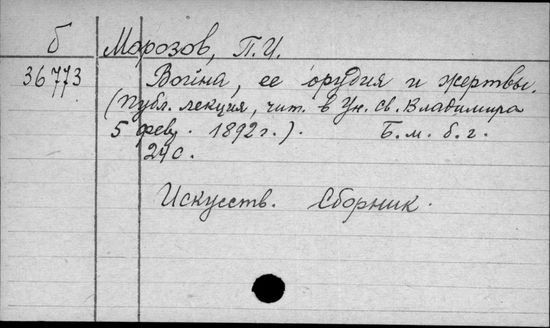 б Морозов, П.И.
36773 Война, ее орудия и жертвы.
(Публ. лекция, чит. в Ун. св. Владимира
5 февр. 1892 г.). Б. м. б. г.
24 с.
Искусств. Сборник.